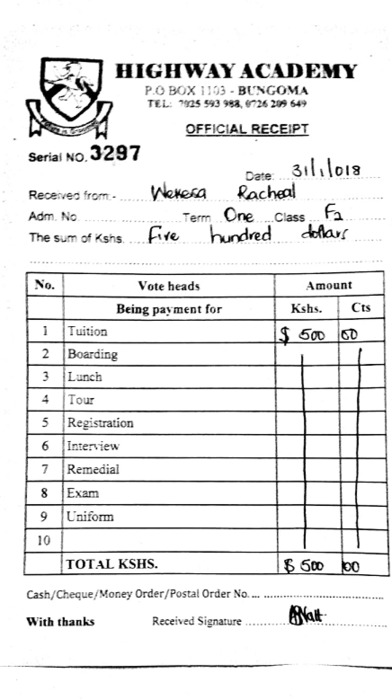 HIGHWAY ACADEMY
P.O BOX 1103 - BUNGOMA
TEL: 7025 593 988, 0726 209 649
OFFICIAL RECEIPT
Serial NO. 3297
Date: 31/1/018
Received from:- Wekesa Racheal
Adm. No Term One Class F2
The sum of Kshs. Five hundred dollars
No. Vote heads Amount
Being payment for Kshs. Cts
1 Tuition $ 500 00
2 Boarding
3 Lunch
4 Tour
5 Registration
6 Interview
7 Remedial
8 Exam
9 Uniform
10
TOTAL KSHS. $ 500 00
Cash/Cheque/Money Order/Postal Order No....
With thanks Received Signature